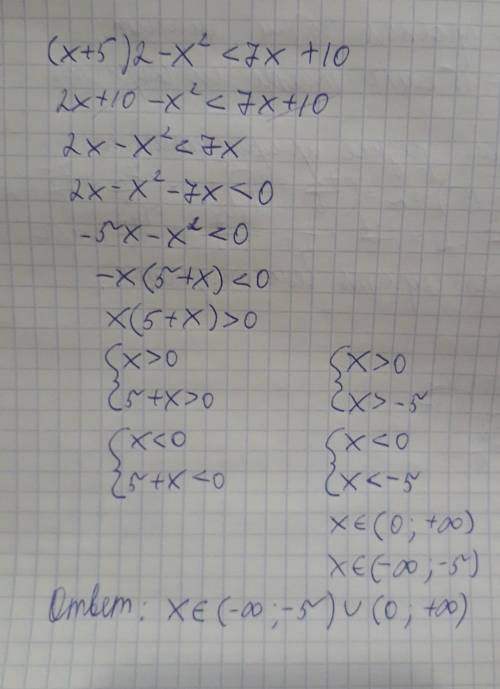 (x+5)2-x²<7x+10
2x+10-x²<7x+10
2x-x²<7x
2x-x²-7x<0
-5x-x²<0
-x(5+x)<0
x(5+x)>0
{x>0 {x>0
{5+x>0 {x>-5
{x<0 {x<0
{5+x<0 {x<-5
x∈(0;+∞)
x∈(-∞;-5)
Ответ: x∈(-∞;-5)∪(0;+∞)